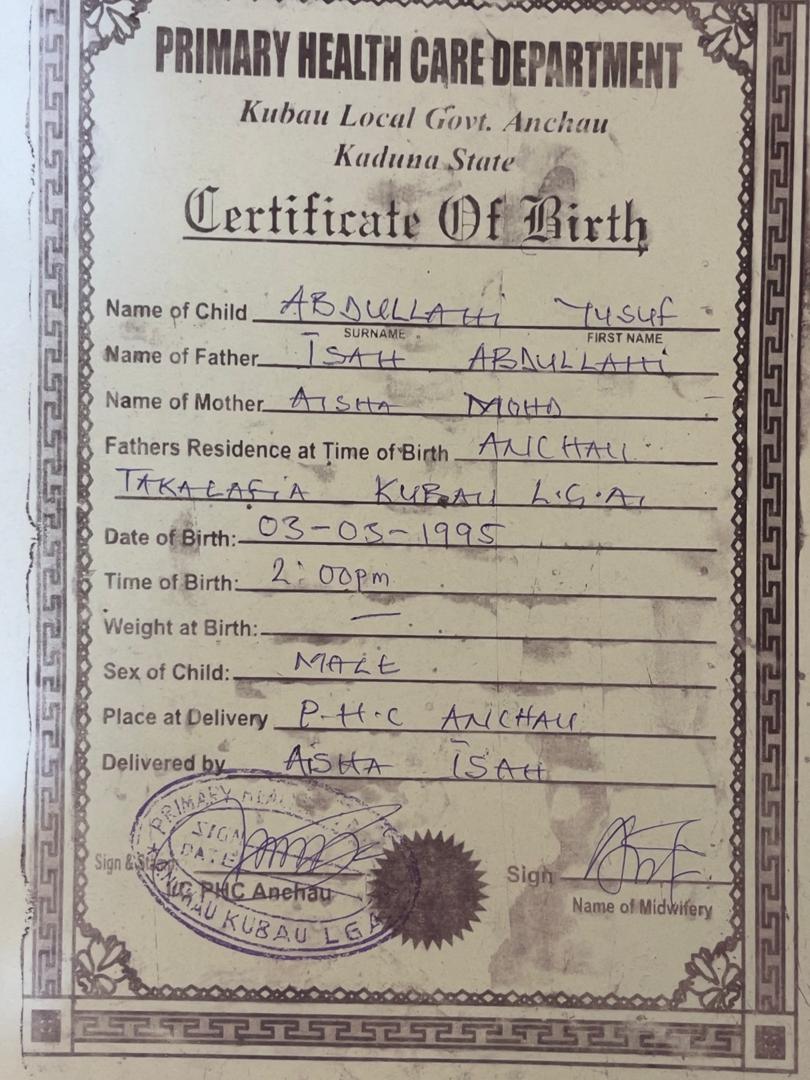 PRIMARY HEALTH CARE DEPARTMENT
Kubau Local Govt. Anchau
Kaduna State
Certificate Of Birth
Name of Child ABDULLAHI YUSUF
SURNAME FIRST NAME
Name of Father ISAH ABDULLAHI
Name of Mother AISHA MOHD
Fathers Residence at Time of Birth ANCHAU
TAKALAFIA KUBAU L.G.A.
Date of Birth: 03-03-1995
Time of Birth: 2:00pm
Weight at Birth: —
Sex of Child: MALE
Place at Delivery P.H.C ANCHAU
Delivered by AISHA ISAH
PRIMARY HEALTH
SIGN
DATE
Sign & Stamp
Sign
I/C PHC Anchau
Name of Midwifery
ANCHAU KUBAU LGA